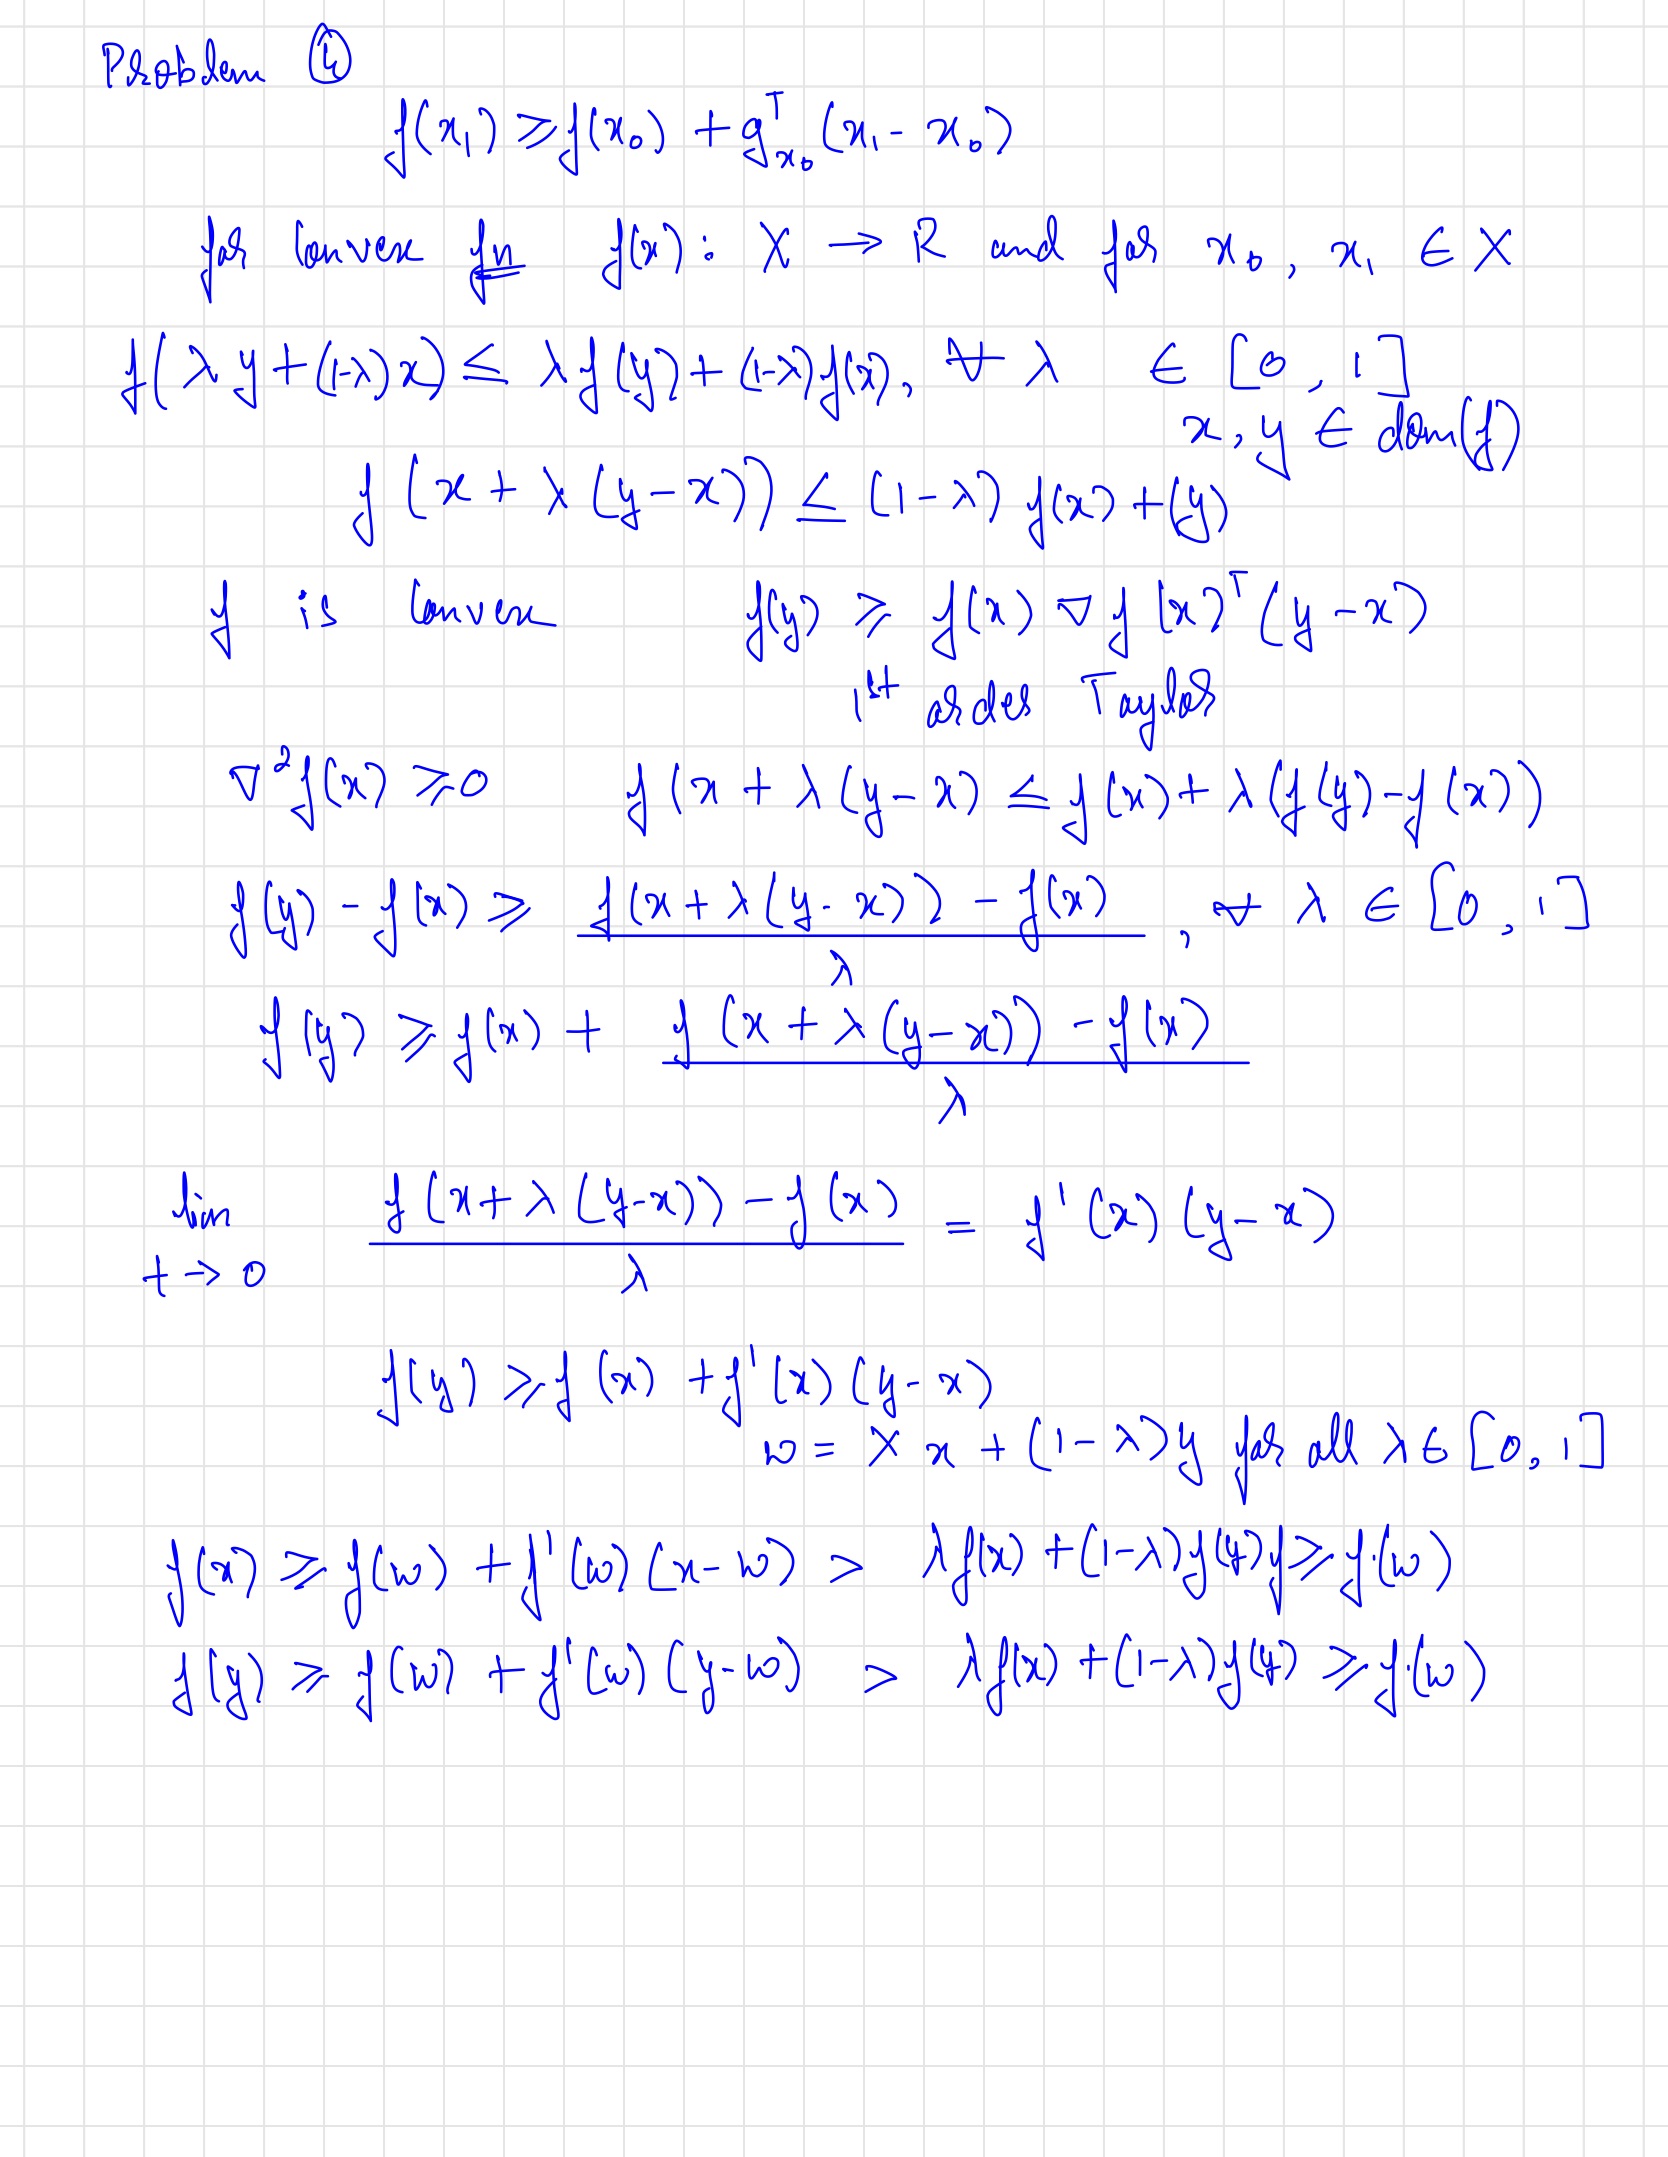 Problem ④
f(x₁) ≥ f(x₀) + gᵀₓ₀ (x₁ - x₀)
for convex fn f(x) : X → R and for x₀, x₁ ∈ X
f(λy + (1-λ)x) ≤ λf(y) + (1-λ)f(x), ∀ λ ∈ [0, 1]
x, y ∈ dom(f)
f(x + λ(y-x)) ≤ (1-λ) f(x) + (y)
f is convex f(y) ≥ f(x) ∇f(x)ᵀ(y-x)
1st order Taylor
∇²f(x) ≥ 0 f(x + λ(y-x) ≤ f(x) + λ(f(y) - f(x))
f(y) - f(x) ≥ f(x + λ(y-x)) - f(x) / λ , ∀ λ ∈ [0, 1]
f(y) ≥ f(x) + f(x + λ(y-x)) - f(x) / λ
lim t→0 f(x + λ(y-x)) - f(x) / λ = f'(x)(y-x)
f(y) ≥ f(x) + f'(x)(y-x)
w = λx + (1-λ)y for all λ ∈ [0, 1]
f(x) ≥ f(w) + f'(w)(x-w) > λf(x) + (1-λ)f(y)y ≥ f(w)
f(y) ≥ f(w) + f'(w)(y-w) > λf(x) + (1-λ)f(y) ≥ f(w)